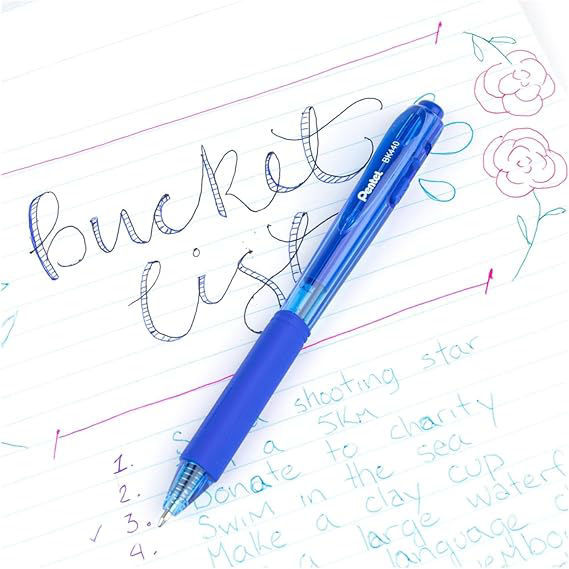 bucket
list
Pentel BK440
1. shooting star
2. a 5KM
✓ 3. Donate to charity
4. Swim in the sea
Make a clay cup
a large
language